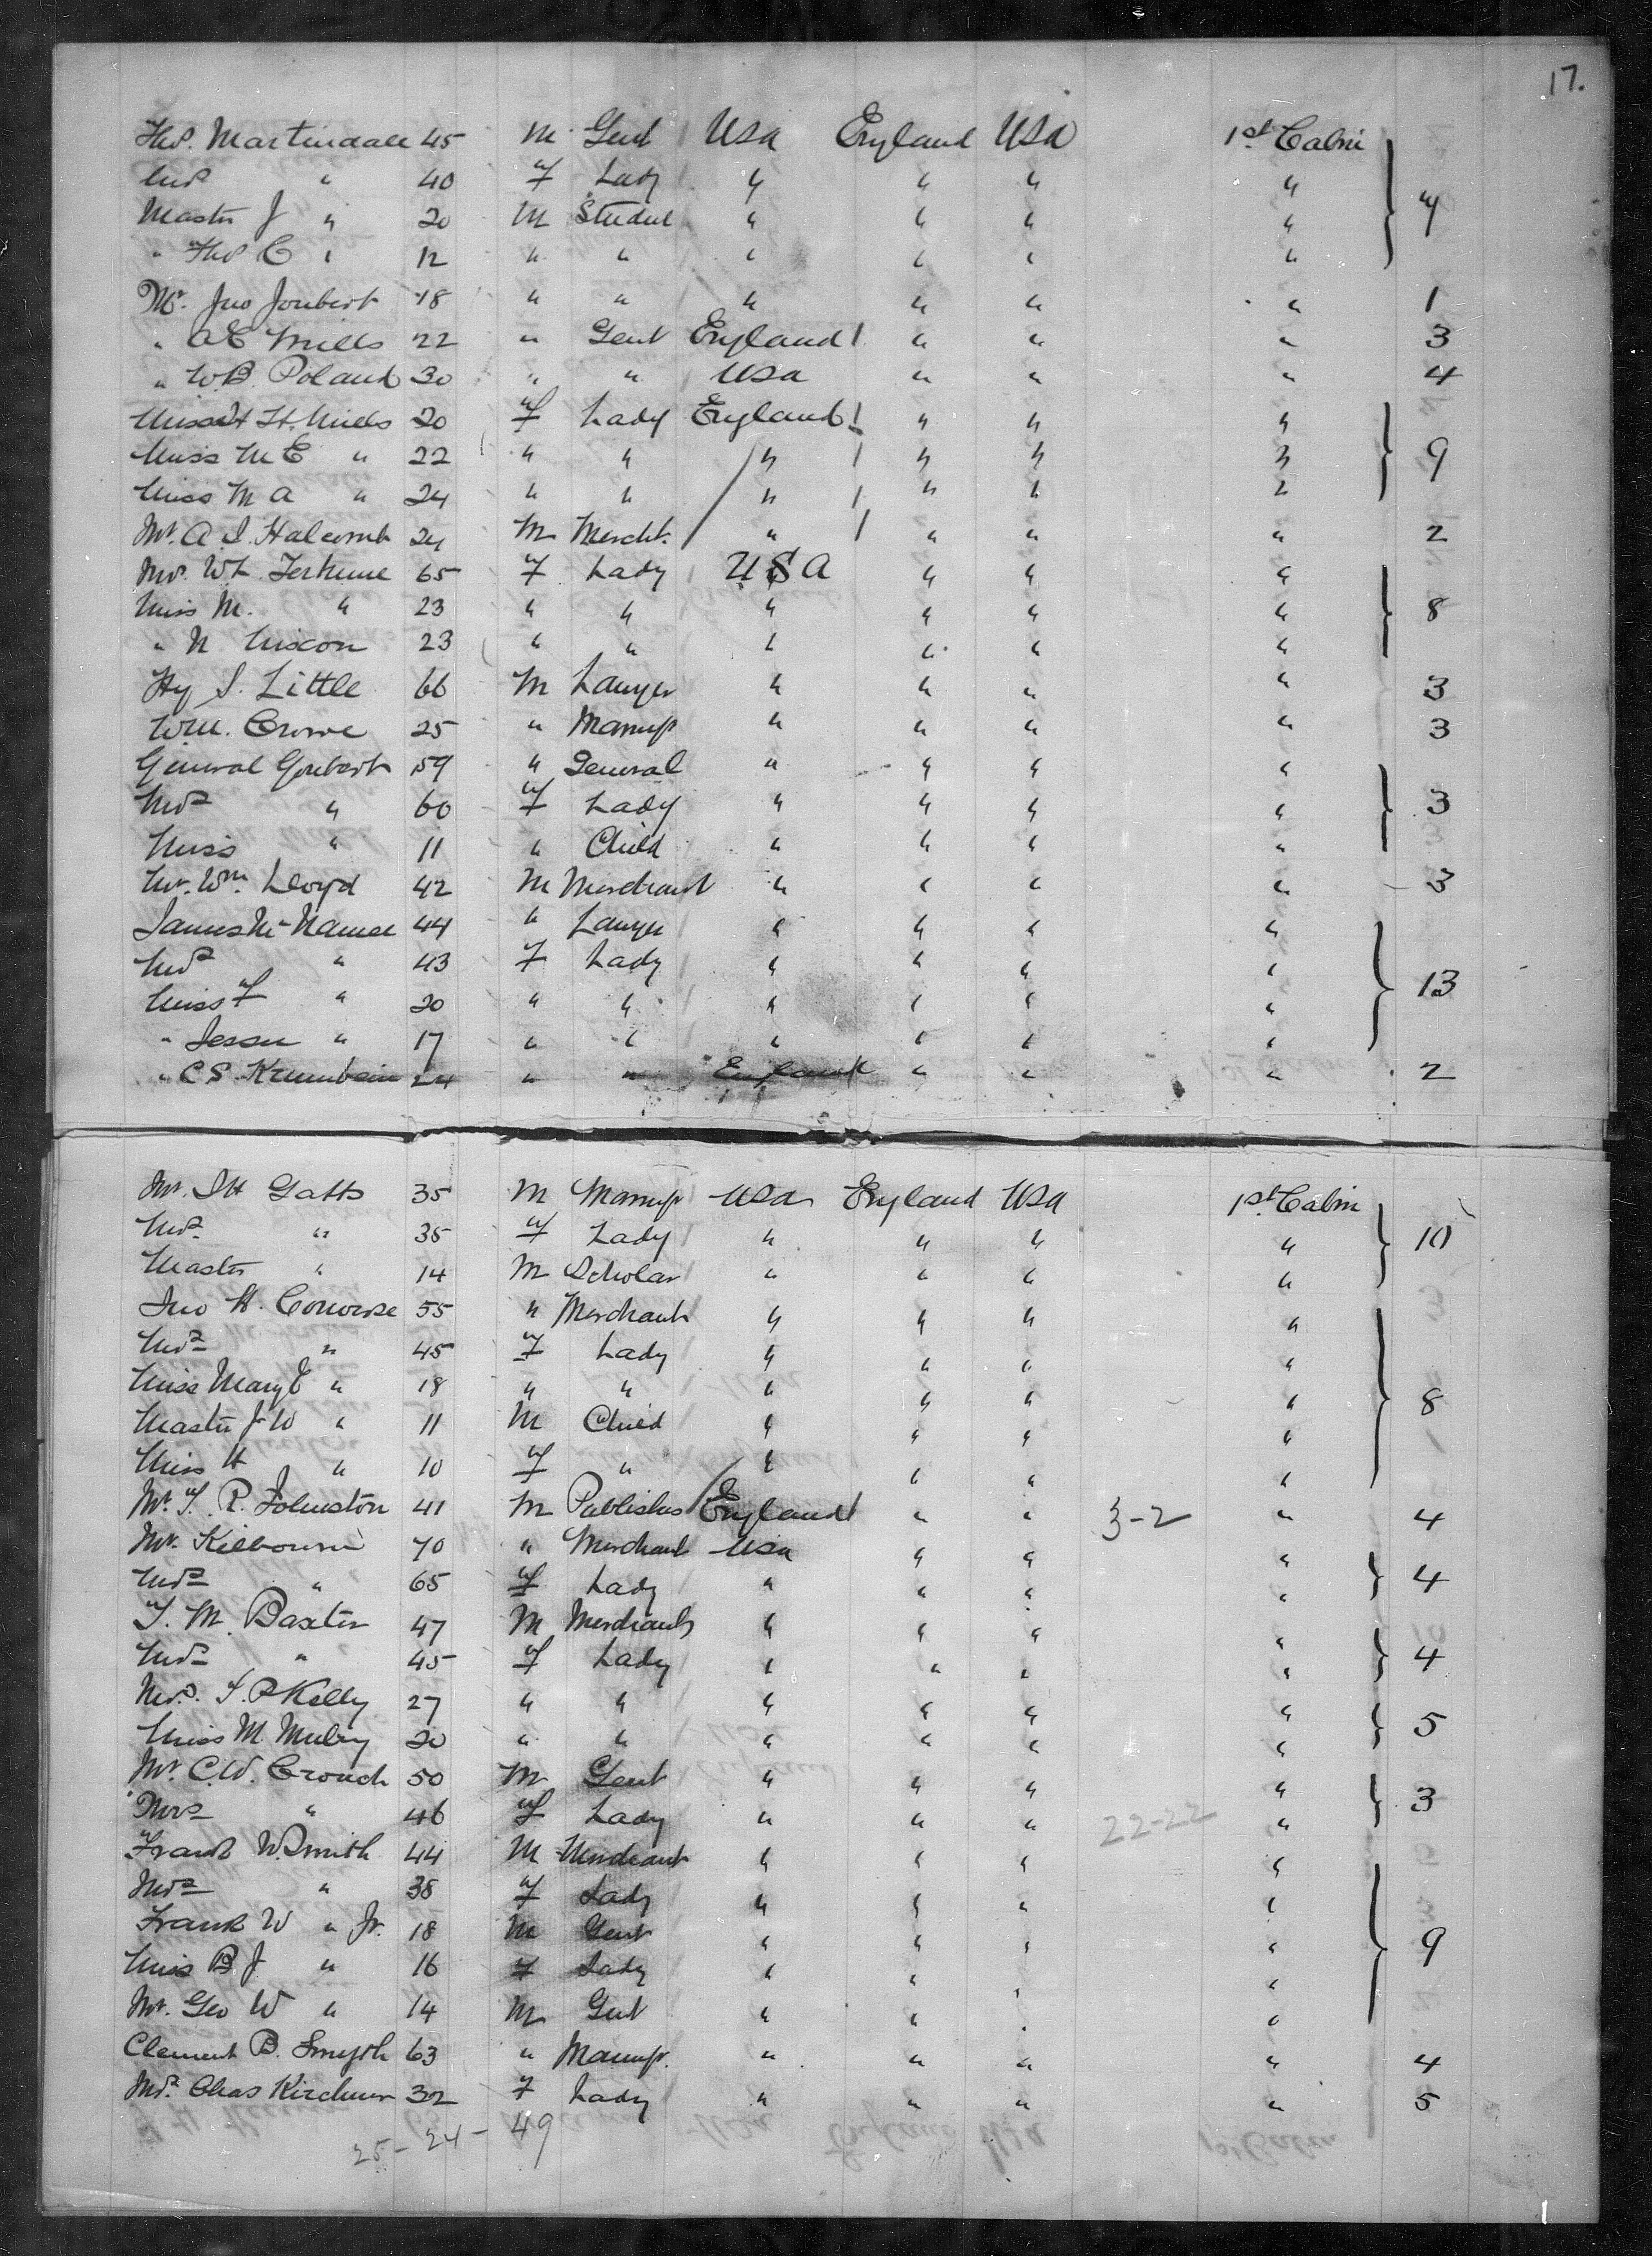 17.
Thos. Martindale 45 M Gent USA England USA 1st Cabin
Mrs " 40 F Lady " " " " 4
Master J " 20 M Student " " " "
" Thos C " 12 " " " " " "
Mr. Jno Joubert 18 " " " " " " 1
" A E Mills 22 " Gent England " " " 3
" W.B. Poland 30 " " USA " " " 4
Miss H. Mills 20 F Lady England " " "
Miss M E " 22 " " " " " " 9
Miss M A " 24 " " " " " "
Mr. A. J. Halcomb 24 M Mercht. " " " " 2
Mrs. W L Terhune 65 F Lady USA " " "
Miss M. " 23 " " " " " " 8
" N Nixon 23 " " " " " "
Hy S. Little 66 M Lawyer " " " " 3
Wm. Crowe 25 " Manuf " " " " 3
General Goubert 59 " General " " " "
Mrs " 60 F Lady " " " " 3
Miss " 11 " Child " " " "
Mr. Wm. Lloyd 42 M Merchant " " " " 3
James McNamee 44 " Lawyer " " " "
Mrs " 43 F Lady " " " "
Miss F " 20 " " " " " " 13
" Jessie " 17 " " " " " "
" C S Krumbein 24 " " England " " " 2
Mr. J H Gatts 35 M Manuf USA England USA 1st Cabin
Mrs " 35 F Lady " " " " 10
Master " 14 M Scholar " " " "
Jno H. Converse 55 " Merchant " " " "
Mrs " 45 F Lady " " " "
Miss Mary E " 18 " " " " " " 8
Master J W " 11 M Child " " " "
Miss H " 10 F " " " " "
Mr. F. R. Johnston 41 M Publisher England " " 3-2 " 4
Mr. Kilbourne 70 " Merchant USA " " "
Mrs " 65 F Lady " " " " 4
F. M. Baxter 47 M Merchant " " " "
Mrs " 45 F Lady " " " " 4
Mrs. F. P Kelly 27 " " " " " "
Miss M. 20 " " " " " " 5
Mr. C. W. Crouch 50 M Gent " " " "
Mrs " 46 F Lady " " " 22-22 " 3
Frank W. Smith 44 M Merchant " " " "
Mrs " 38 F Lady " " " "
Frank W " Jr. 18 M Gent " " " " 9
Miss B J " 16 F Lady " " " "
Mr. Geo W " 14 M Gent " " " "
Clement B. Smyth 63 " Manuf. " " " " 4
Mrs. Chas Kirchner 32 F Lady " " " " 5
25-24-49